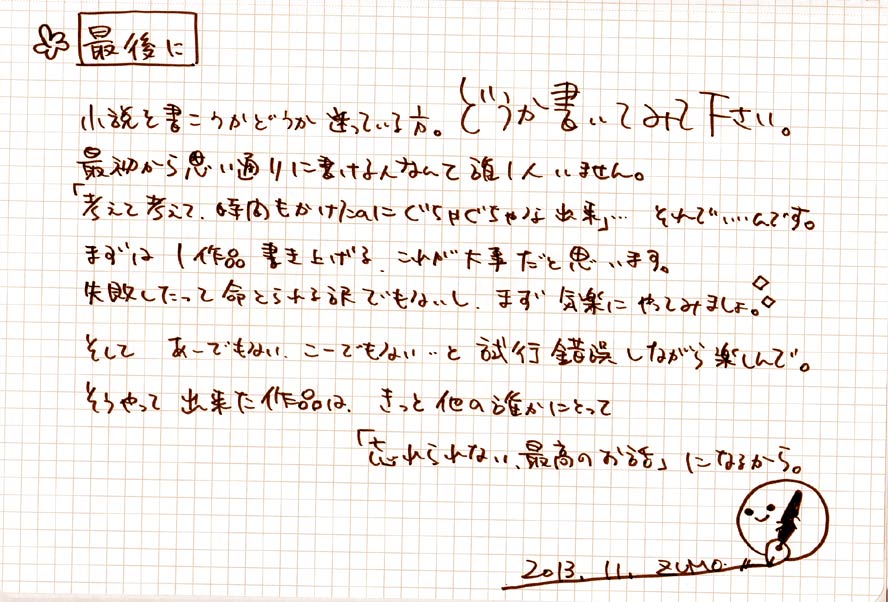 最後に
小説を書こうかどうか迷っている方。どうか書いてみて下さい。
最初から思い通りに書ける人なんて誰1人いません。
「考えて考えて、時間もかけたのにぐちゃぐちゃな出来」… それでいいんです。
まずは1作品書き上げる、これが大事だと思います。
失敗したって命とられる訳でもないし、まず気楽にやってみましょ。
そして あーでもない、こーでもない…と試行錯誤しながら楽しんで。
そうやって出来た作品は、きっと他の誰かにとって
「忘れられない、最高のお話」になるから。
2013.11. ZUMO.